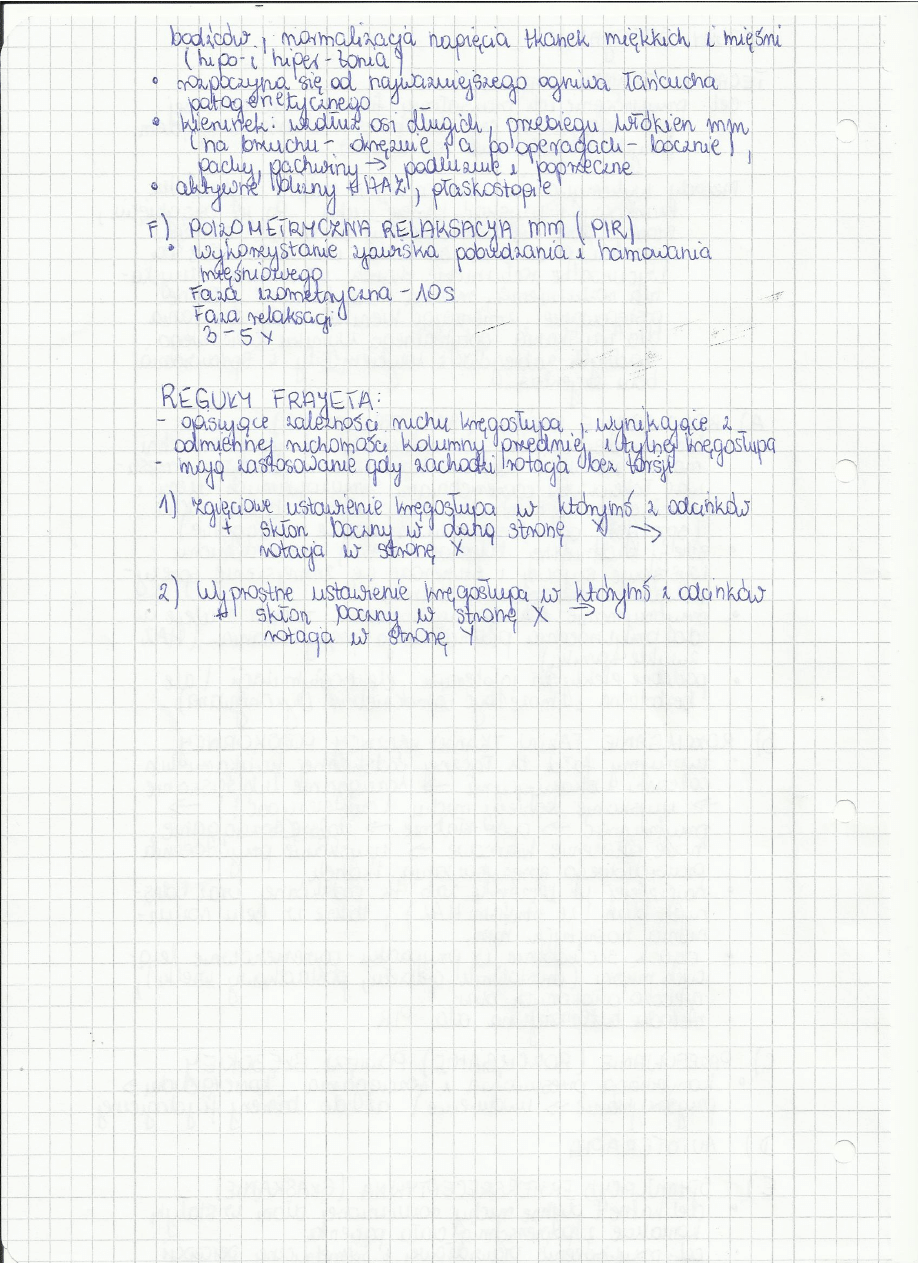 bodźców, normalizacja napięcia tkanek miękkich i mięśni
(hipo- i hiper-tonia)
• rozpoczyna się od najważniejszego ogniwa łańcucha
patogenetycznego
• kierunek: wzdłuż osi długich, przebiegu włókien mm
(na brzuchu - okrężnie, a po operacjach - bocznie),
pachy, pachwiny → podłużnie i poprzeczne
• aktywne blizny, HAZ, płaskostopie
F) POIZOMETRYCZNA RELAKSACJA mm (PIR)
• wykorzystanie zjawiska pobudzania i hamowania
mięśniowego
Faza izometryczna - 10s
Faza relaksacji
3 - 5 x
REGUŁY FRAYETA:
- opisujące zależności ruchu kręgosłupa, wynikające z
odmiennej ruchomości kolumny przedniej i tylnej kręgosłupa
- mają zastosowanie gdy zachodzi rotacja bez torsji
1) zgięciowe ustawienie kręgosłupa w którymś z odcinków
+ skłon boczny w daną stronę X →
rotacja w stronę X
2) Wyprostne ustawienie kręgosłupa w którymś z odcinków
+ skłon boczny w stronę X →
rotacja w stronę Y